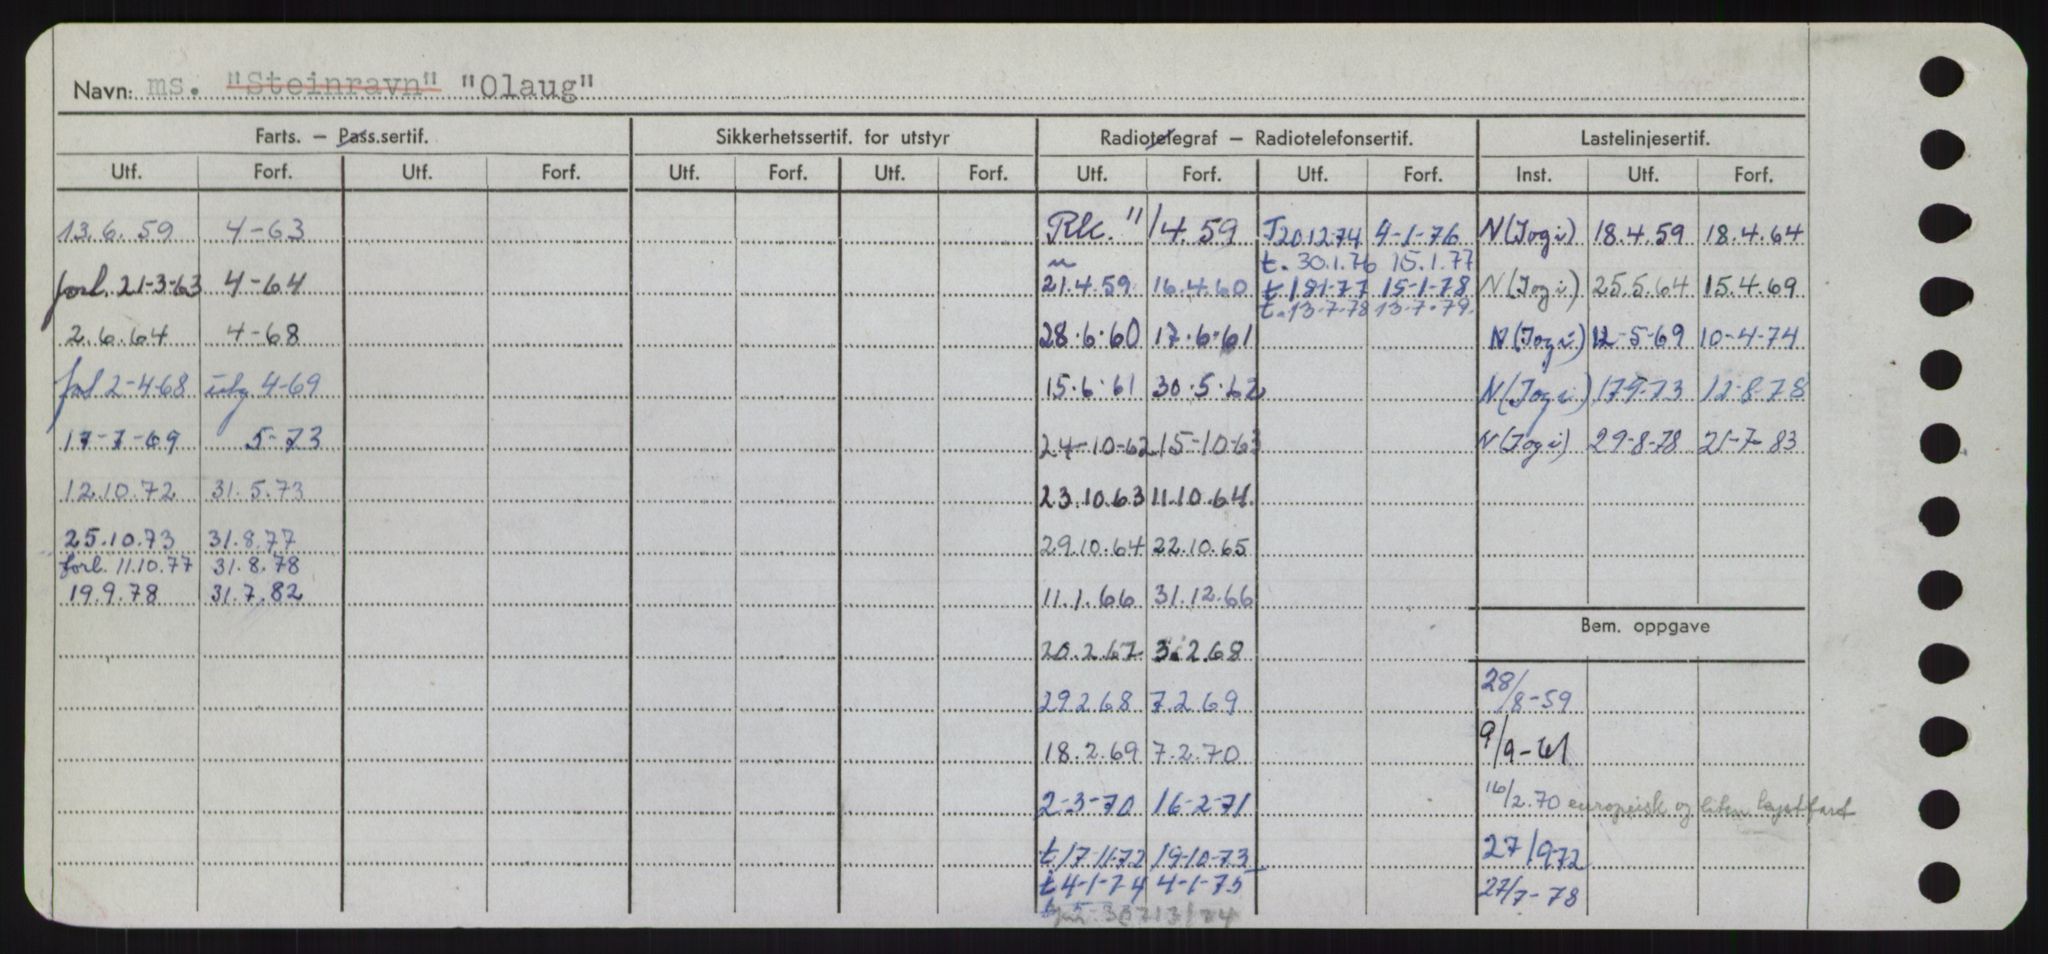 Navn: ms. "Steinravn" "Olaug"
Farts. — Pass.sertif. Sikkerhetssertif. for utstyr Radiotelegraf — Radiotelefonsertif. Lastelinjesertif.
Utf. Forf. Utf. Forf. Utf. Forf. Utf. Forf. Utf. Forf. Utf. Forf. Inst. Utf. Forf.
13.6.59 4-63 Rk. 11/4.59 T 20.12.74 4-1-76 N(Jogi) 18.4.59 18.4.64
t. 30.1.76 15.1.77
forl. 21-3-63 4-64 21.4.59 16.4.60 t 18-1-77 15-1-78 N(Jogi) 25.5.64 15.4.69
t. 13-7-78 13-7-79
2.6.64 4-68 28.6.60 17.6.61 N(Jogi) 12-5-69 10-4-74
forl 2-4-68 utg 4-69 15.6.61 30.5.62 N(Jogi) 17.9-73 12-8-78
17-7-69 5-73 24-10-62 15-10-63 N(Jogi) 29-8-78 21-7-83
12.10.72 31.5.73 23.10.63 11.10.64
25.10.73 31.8.77 29.10.64 22.10.65
forl. 11.10.77 31.8.78
19.9.78 31.7.82 11.1.66 31.12.66
Bem. oppgave
20.2.67 3.2.68
29.2.68 7.2.69 28/8-59
18.2.69 7.2.70 9/9-61
2-3-70 16-2-71 16/2.70 europeisk og liten kystfart
t 17-11-72 19-10-73 27/9 72
t 4-1-74 4-1-75 27/7-78